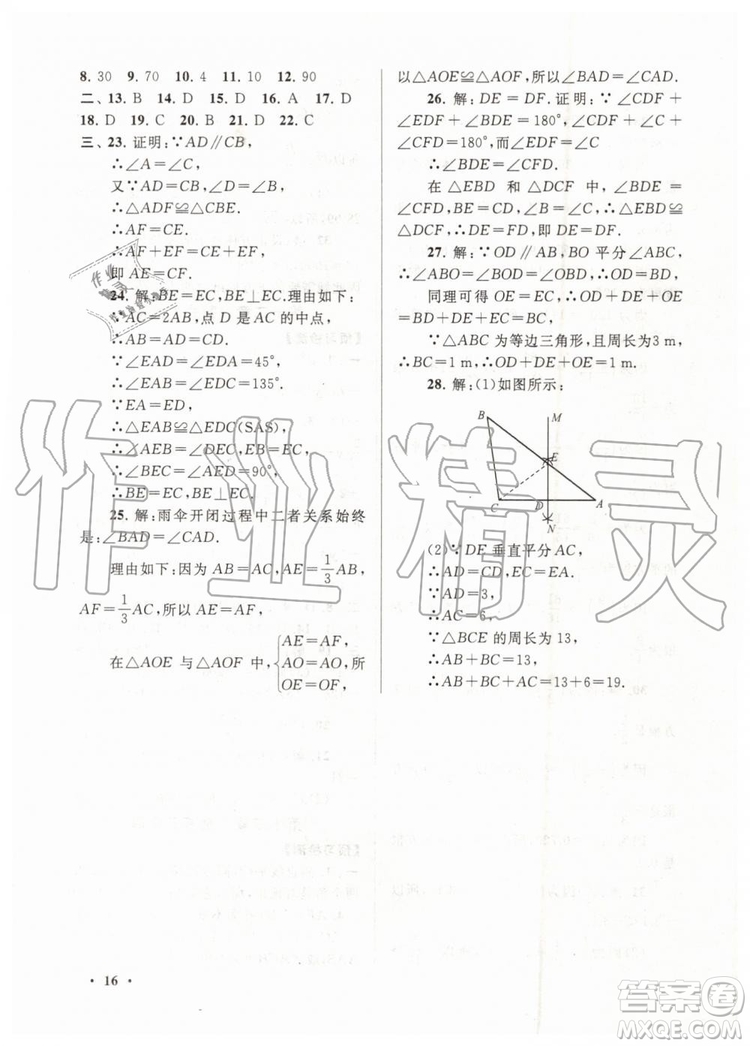 8. 30  9. 70  10. 4  11. 50  12. 90
二、13. B  14. D  15. D  16. A  17. D
18. D  19. C  20. B  21. D  22. C
三、23. 证明:∵AD∥CB,
∴∠A=∠C,
又∵AD=CB,∠D=∠B,
∴△ADF≌△CBE.
∴AF=CE.
∴AF+EF=CE+EF,
即 AE=CF.
24. 解:BE=EC,BE⊥EC.理由如下:
∵AC=2AB,点 D 是AC的中点,
∴AB=AD=DC.
∵∠EAD=∠EDA=45°,
∴∠EAB=∠EDC=135°.
∵EA=ED,
∴△EAB≌△EDC(SAS)
∴∠AEB=∠DEC,EB=EC.
∴∠BEC=∠AED=90°,
∴BE=EC,BE⊥EC.
25. 解:雨伞开闭过程中二者关系始终
是:∠BAD=∠CAD.
理由如下:因为 AB=AC,AE=1/3AB,
AF=1/3AC,所以 AE=AF.
在△AOE 与△AOF 中,{AE=AF,
AO=AO,所
OE=OF,
以△AOE≌△AOF,所以∠BAD=∠CAD.
26. 解:DE=DF.证明:∵∠CDF+
∠EDB+∠EDF=180°,∠BDE+∠BED+
∠EBD=180°,而∠EDF=∠EBD,
∴∠BED=∠CDF.
同理可得∠BDE=∠CFD.
在 △EBD 和 △DCF 中,∠BED=
∠CDF,BE=CD,∠BDE=∠CFD,
∴△BDE≌△CFD,即 DE=DF.
27. 解:∵OD∥AB,BO平分∠ABC,
∴∠ABO=∠BOD=∠OBD,∴OD=BD.
同理可得 OE=EC.
∵△ABC为等边三角形,且周长为3 m,
∴BC=1 m,∴OD+DE+OE=BC=1 m.
28. 解:(1)如图所示:
B M
E
C D A
N
(2)∵DE 垂直平分 AC,
∴AD=CD,EC=EA.
∵AD=3,
∴AC=6,
∵△BCE 的周长为 13,
∴AB+BC=13,
∴AB+BC+AC=13+6=19.
作业精灵
• 16 •
答案卷
MXQE.COM